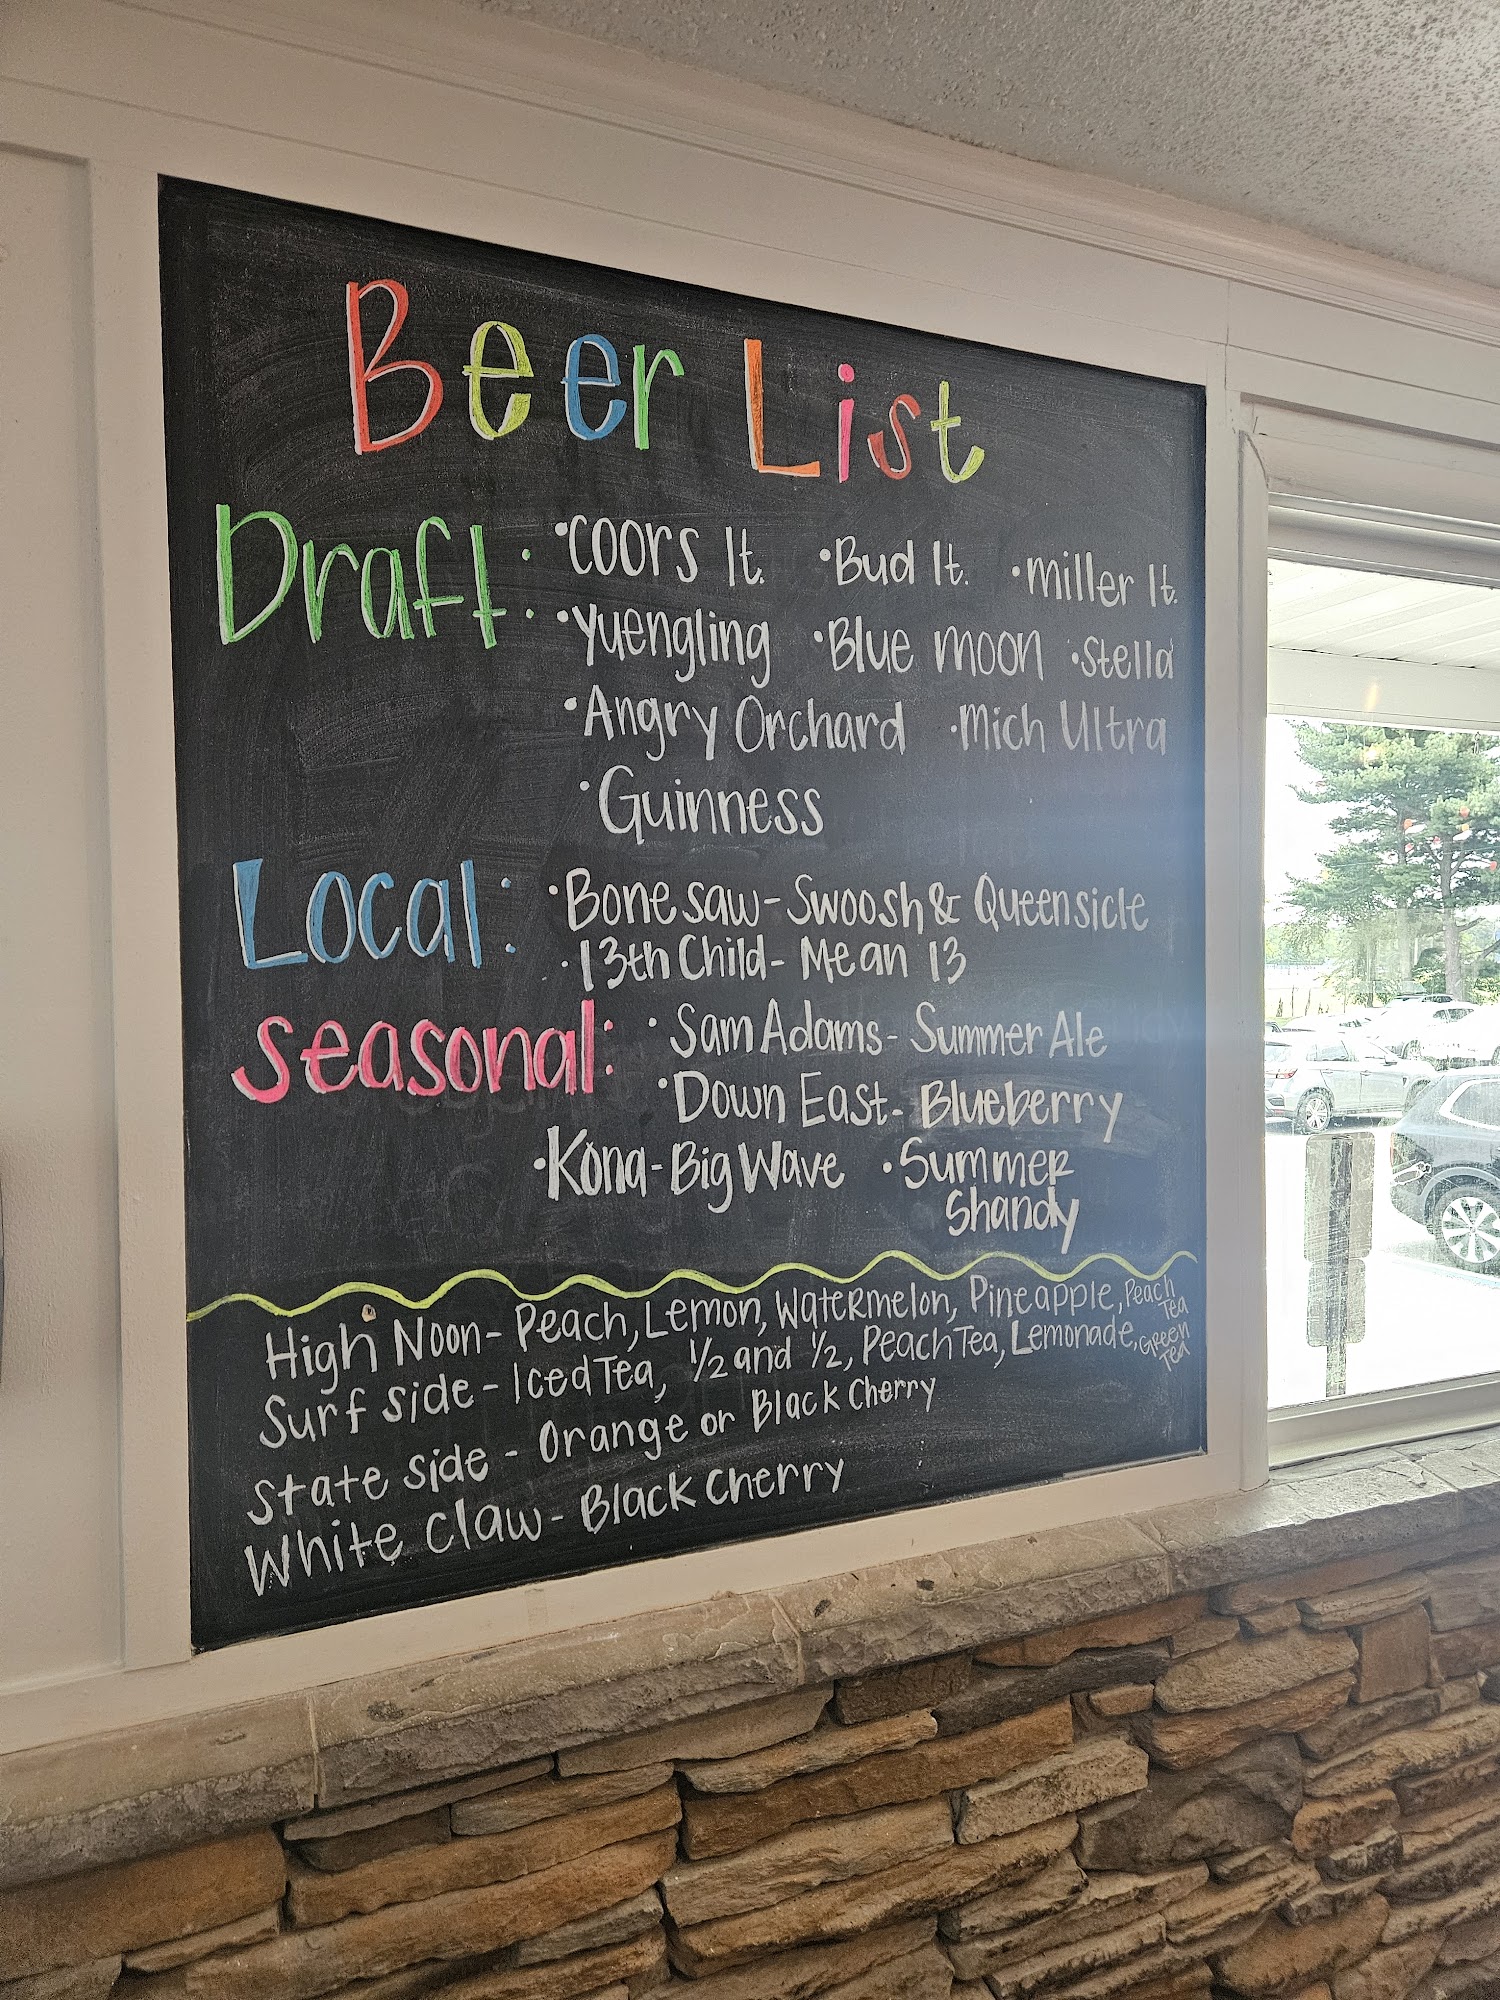 Beer List
Draft: • Coors lt. • Bud lt. • miller lt.
• Yuengling • Blue moon • Stella
• Angry Orchard • Mich Ultra
• Guinness
Local: • Bonesaw - Swoosh & Queensicle
• 13th Child - Mean 13
Seasonal: • Sam Adams - Summer Ale
• Down East - Blueberry
• Kona - Big Wave • Summer
Shandy
High Noon - Peach, Lemon, Watermelon, Pineapple, Peach
Tea
Surf side - Iced Tea, 1/2 and 1/2, Peach Tea, Lemonade, Green
Tea
State side - Orange or Black Cherry
White Claw - Black Cherry